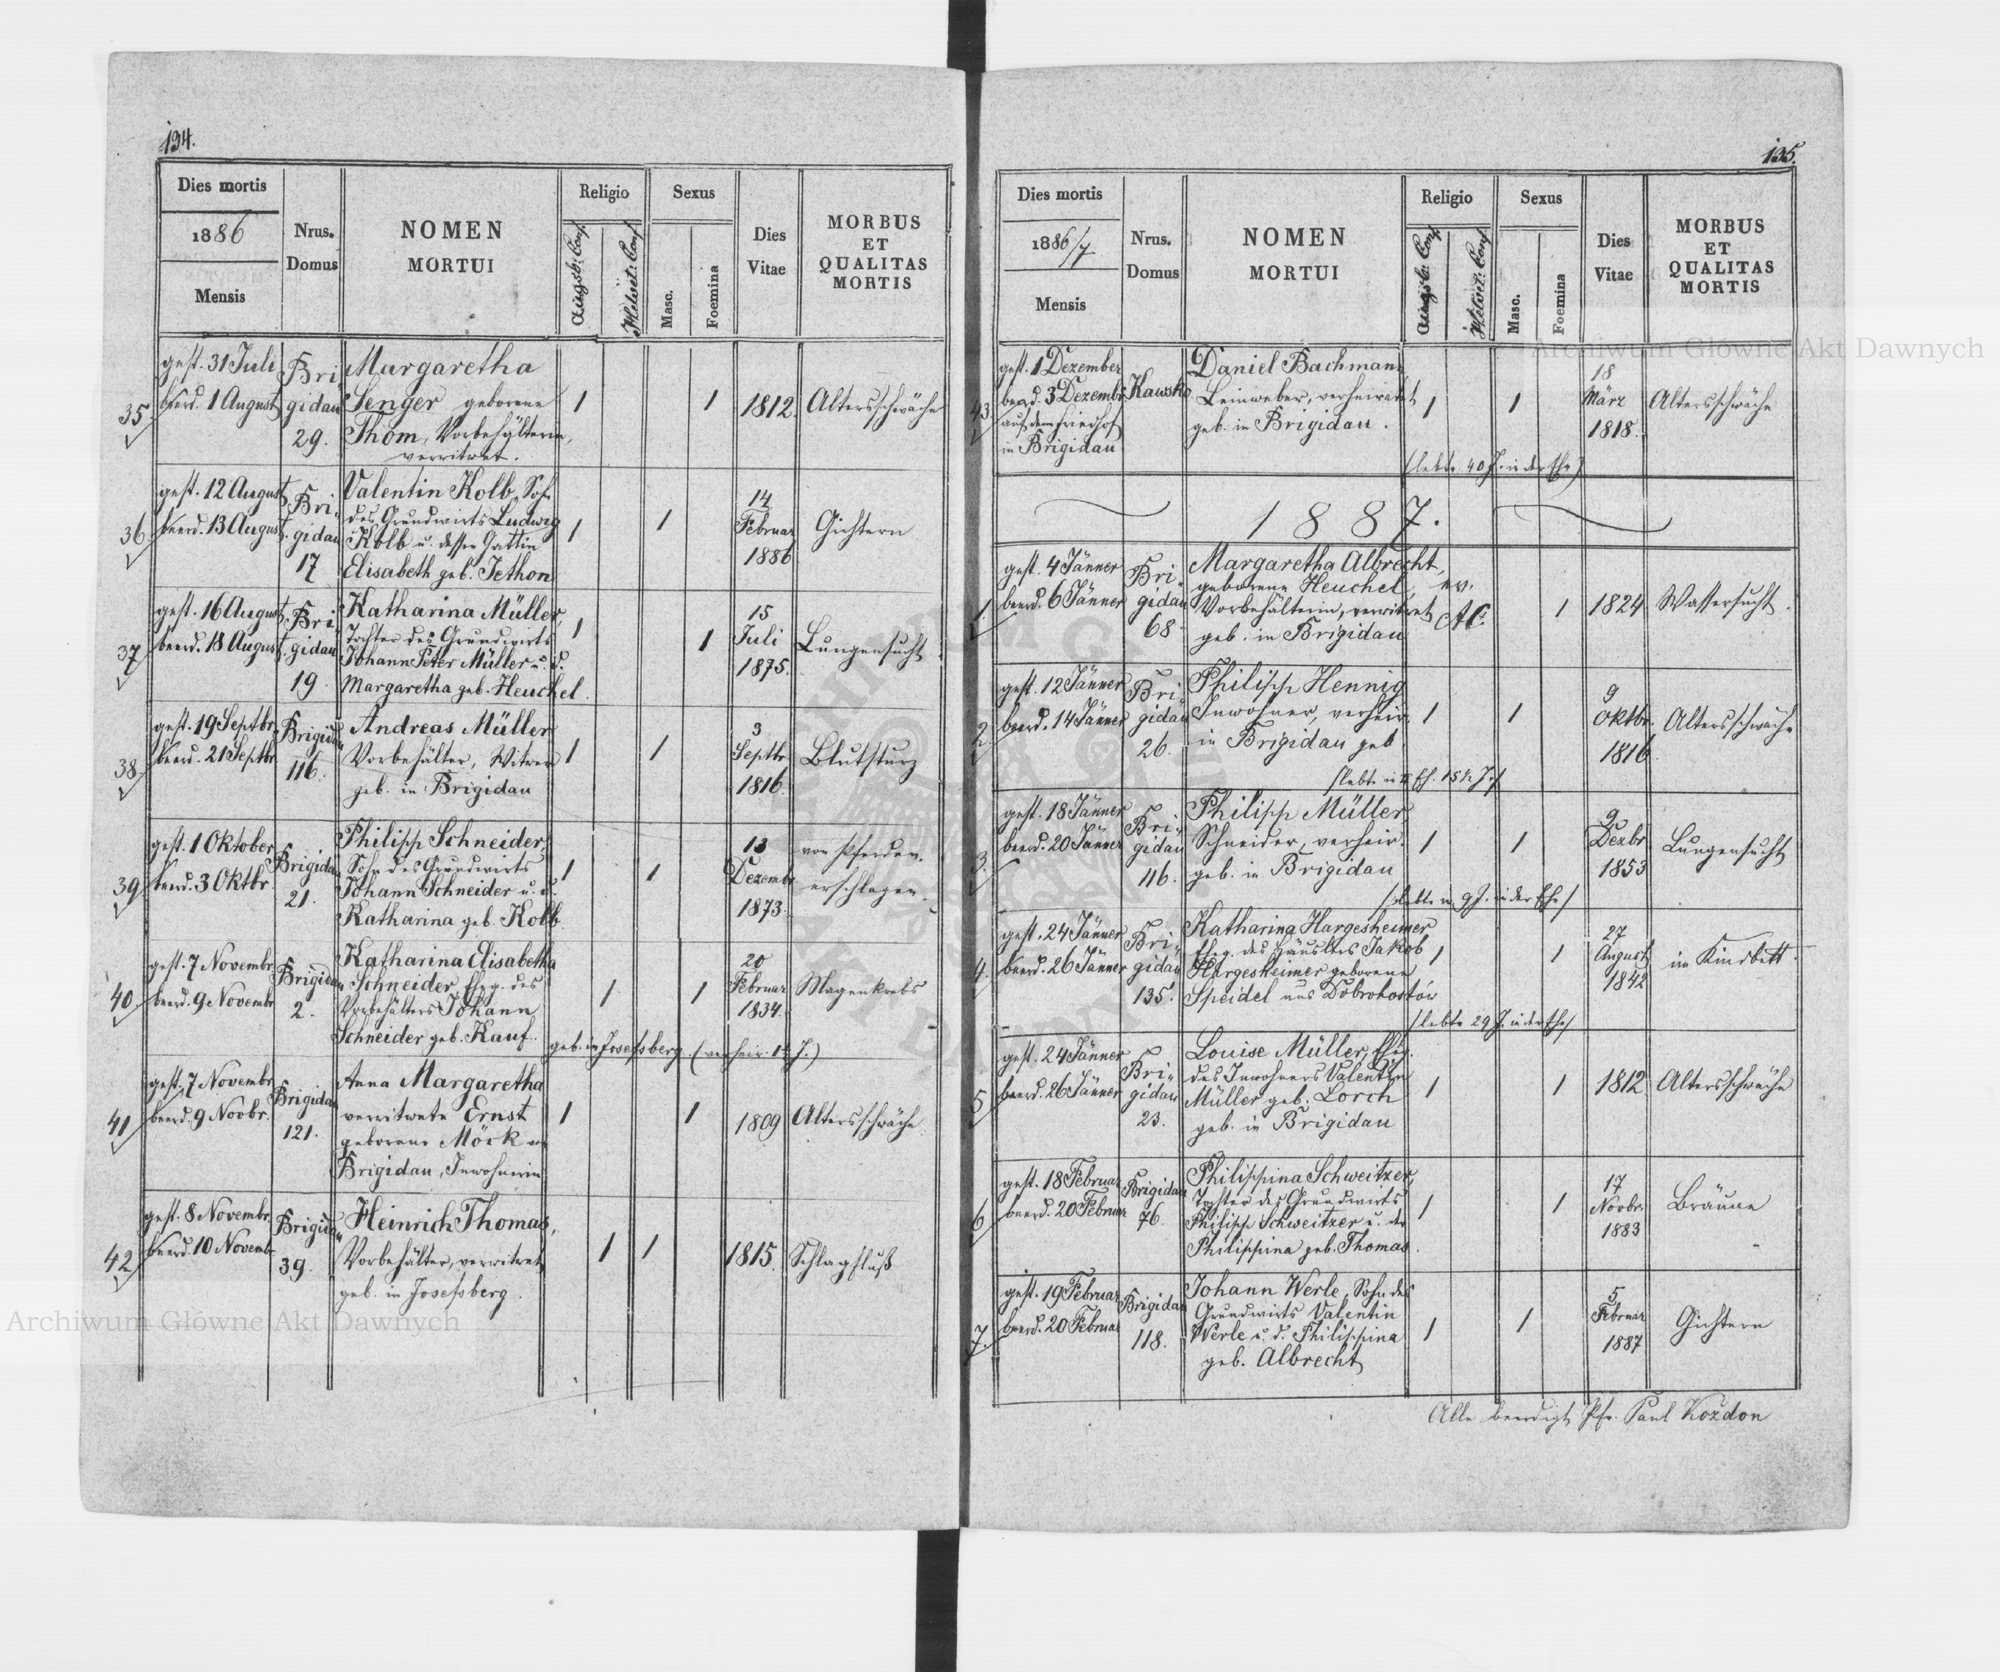 134.
Dies mortis
1886
Mensis
Nrus.
Domus
NOMEN
MORTUI
Religio
Augsb: Conf
Helvet: Conf
Sexus
Masc.
Foemina
Dies
Vitae
MORBUS
ET
QUALITAS
MORTIS
35.
gest. 31 Juli
beerd. 1 August
Bri-
gidau
29.
Margaretha
Senger geborene
Thom, Vorbehälterin,
verwitwet.
1
1
1812.
Altersschwäche
36
gest. 12 August
beerd. 13 August
Bri-
gidau
17
Valentin Kolb, Sohn
des Grundwirts Ludwig
Kolb u. dessen Gattin
Elisabeth geb. Jethon
1
1
14
Februar
1886
Gichtern
37
gest. 16 August
beerd. 18 August
Bri-
gidau
19.
Katharina Müller,
Tochter des Grundwirts
Johann Peter Müller u. d.
Margaretha geb. Heuchel.
1
1
15
Juli
1875.
Lungensucht
38
gest. 19 Septbr.
beerd. 21 Septbr
Brigidau
116.
Andreas Müller
Vorbehälter, Witwer
geb. in Brigidau
1
1
3
Septbr
1816.
Blutsturz
39
gest. 1 Oktober
beerd. 3 Oktbr.
Brigidau
21.
Philipp Schneider,
Sohn des Grundwirts
Johann Schneider u. d.
Katharina geb. Kolb.
1
1
13
Dezembr
1873.
von Pferden
erschlagen
40
gest. 7 Novembr.
beerd. 9 Novembr
Brigidau
2.
Katharina Elisabetha
Schneider, Eheg. des
Vorbehälters Johann
Schneider geb. Kauf.
geb. in Josefsberg (verheir. J.)
1
1
20
Februar
1834.
Magenkrebs
41
gest. 7 Novembr.
beerd. 9 Novbr.
Brigidau
121.
Anna Margaretha
verwitwete Ernst
geborene Möck
Brigidau, Inwohnerin
1
1
1809
Altersschwäche
42
gest. 8 Novembr.
beerd. 10 Novembr.
Brigidau
39.
Heinrich Thomas,
Vorbehälter, verwitwet
geb. in Josefsberg.
1
1
1815.
Schlagfluß
135.
Dies mortis
1886/7
Mensis
Nrus.
Domus
NOMEN
MORTUI
Religio
Augsb: Conf
Helvet: Conf
Sexus
Masc.
Foemina
Dies
Vitae
MORBUS
ET
QUALITAS
MORTIS
43.
gest. 1 Dezember
beerd. 3 Dezembr
auf dem Friedhof
in Brigidau
Kawsko
Daniel Bachmann
Leinweber, verheiratet
geb. in Brigidau.
(lebte 40 J. in der Ehe)
1
1
18
März
1818.
Altersschwäche
1887.
1.
gest. 4 Jänner
beerd. 6 Jänner
Bri-
gidau
68.
Margaretha Albrecht,
geborene Heuchel,
Vorbehälterin, verwitwet
geb. in Brigidau
ev.
A.C.
1
1824
Wassersucht.
2.
gest. 12 Jänner
beerd. 14 Jänner
Bri-
gidau
26.
Philipp Hennig
Inwohner, verheir.
in Brigidau geb.
1
1
9
Oktbr.
1816.
Altersschwäche
3.
gest. 18 Jänner
beerd. 20 Jänner
Bri-
gidau
116.
Philipp Müller,
Schneider, verheir.
geb. in Brigidau
(lebte 9 J. in der Ehe)
1
1
9
Dezbr
1853
Lungensucht
4.
gest. 24 Jänner
beerd. 26 Jänner
Bri-
gidau
135.
Katharina Hargesheimer
Eheg. des Häuslers Jakob
Hargesheimer geborene
Speidel aus Dobrohostów
(lebte 29 J. in der Ehe)
1
1
27
August
1842
im Kindbett.
5
gest. 24 Jänner
beerd. 26 Jänner
Bri-
gidau
23.
Louise Müller, Eheg.
des Inwohners Valentin
Müller geb. Lorch
geb. in Brigidau
1
1
1812
Altersschwäche
6
gest. 18 Februar
beerd. 20 Februar
Brigidau
76.
Philippina Schweitzer,
Tochter des Grundwirts
Philipp Schweitzer u. der
Philippina geb. Thomas.
1
1
17
Novbr.
1883
Bräune
7.
gest. 19 Februar
beerd. 20 Februar
Brigidau
118.
Johann Werle, Sohn des
Grundwirts Valentin
Werle u. d. Philippina
geb. Albrecht
1
1
5
Februar
1887
Gichtern
Alle beerdigt Pfr. Paul Kozdon
Archiwum Główne Akt Dawnych
Archiwum Główne Akt Dawnych